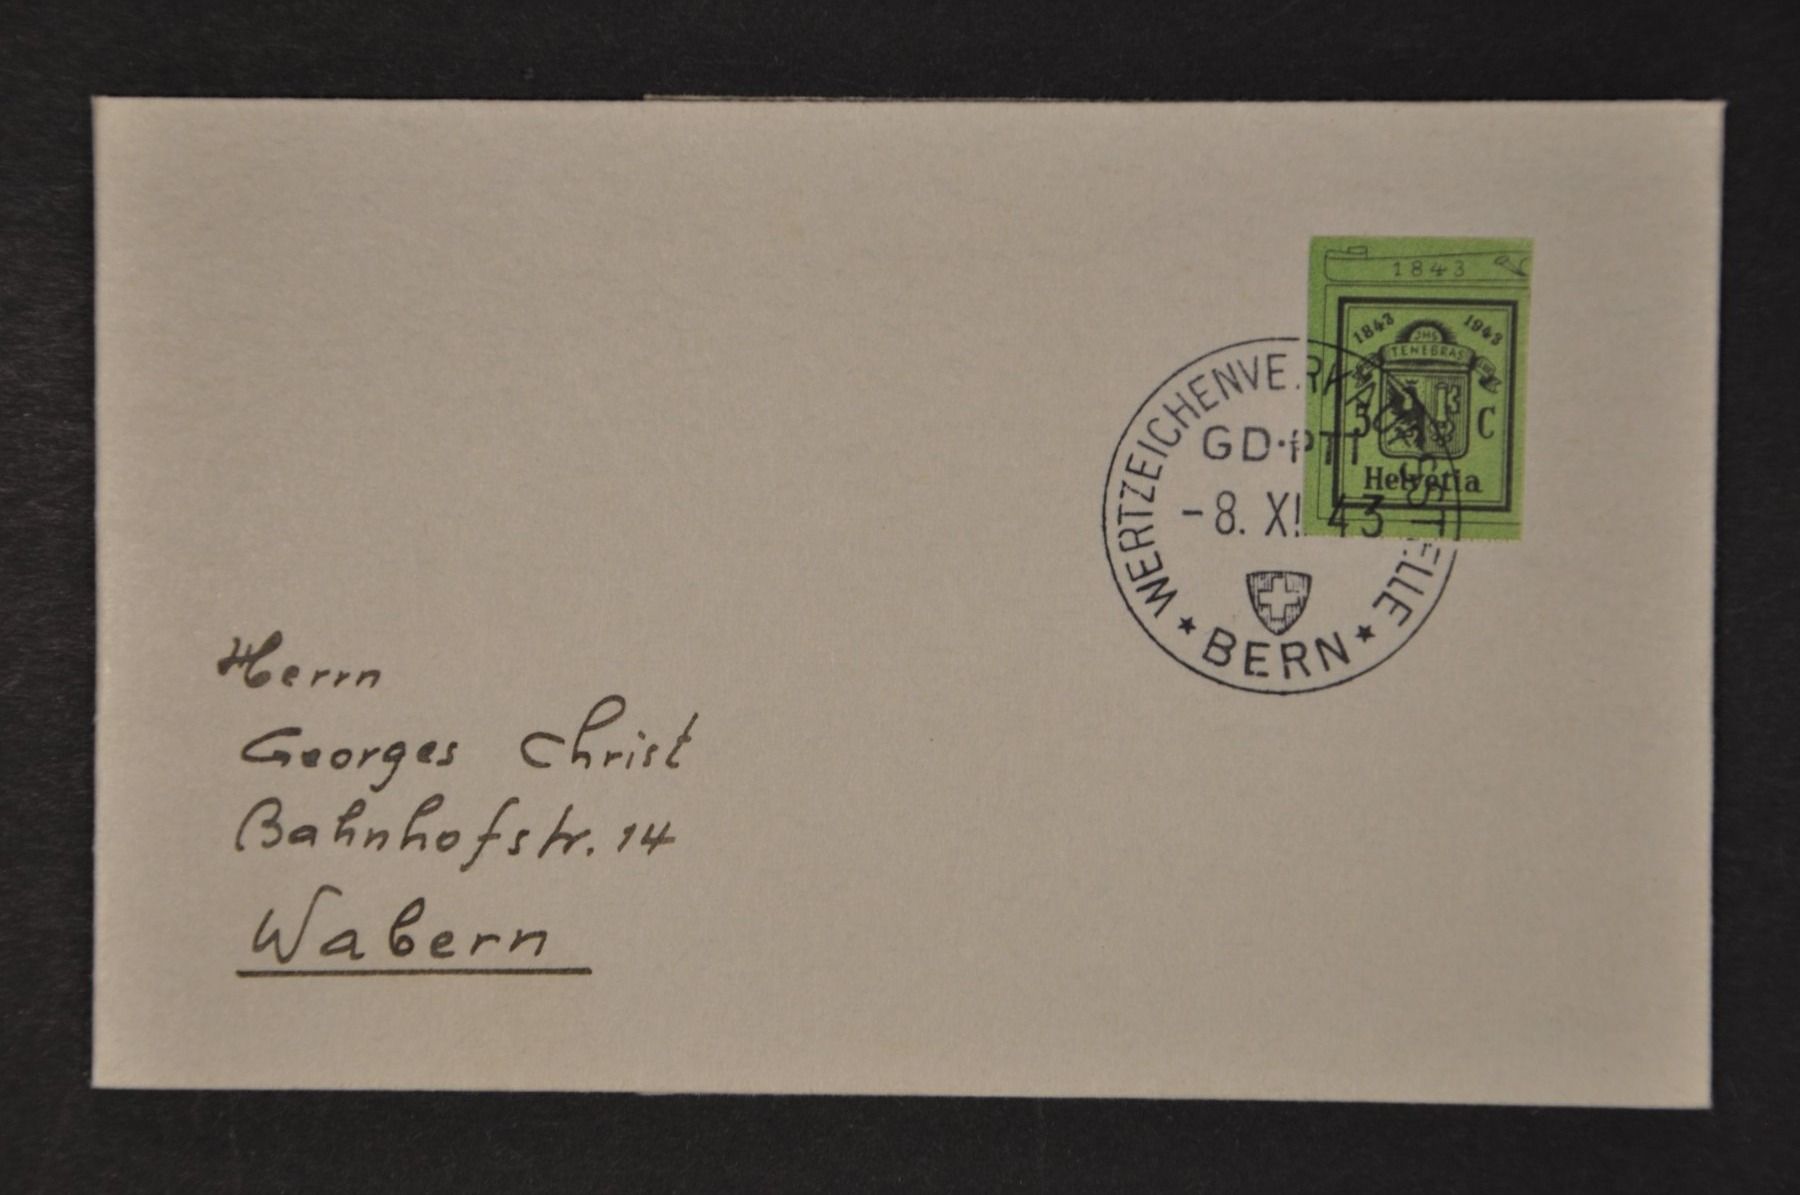 1843
1843 1943
JHS
TENEBRAS
5 C
Helvetia
WERTZEICHENVERKAUFSSTELLE
GD·PTT
-8. XI. 43
★ BERN ★
Herrn
Georges Christ
Bahnhofstr. 14
Wabern